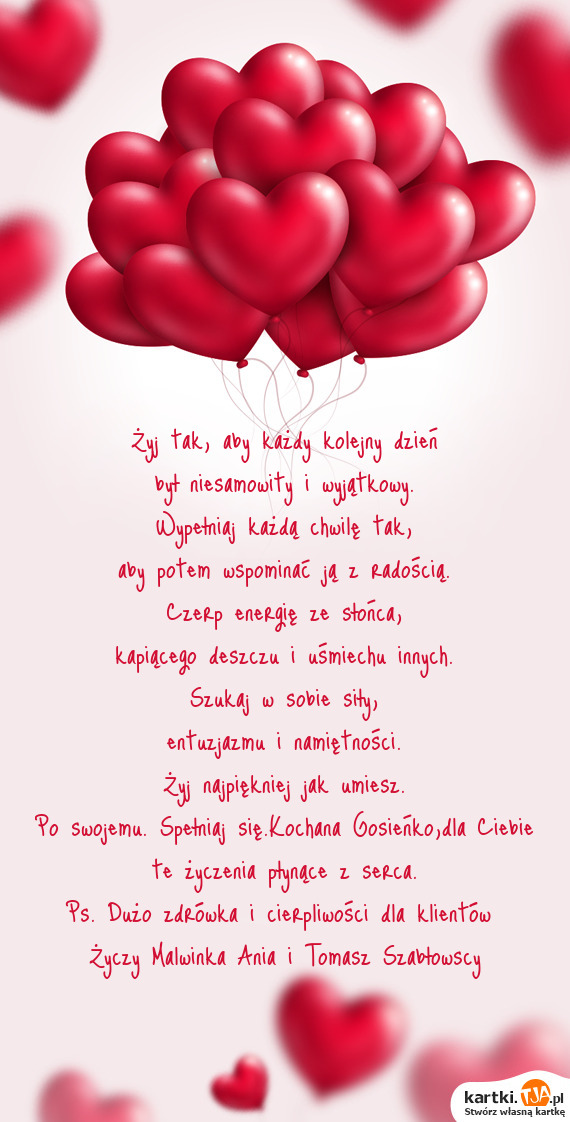 Żyj tak, aby każdy kolejny dzień
był niesamowity i wyjątkowy.
Wypełniaj każdą chwilę tak,
aby potem wspominać ją z radością.
Czerp energię ze słońca,
kapiącego deszczu i uśmiechu innych.
Szukaj w sobie siły,
entuzjazmu i namiętności.
Żyj najpiękniej jak umiesz.
Po swojemu. Spełniaj się.Kochana Gosieńko,dla Ciebie
te życzenia płynące z serca.
Ps. Dużo zdrówka i cierpliwości dla klientów
Życzy Malwinka Ania i Tomasz Szabłowscy
kartki.TJA.pl
Stwórz własną kartkę